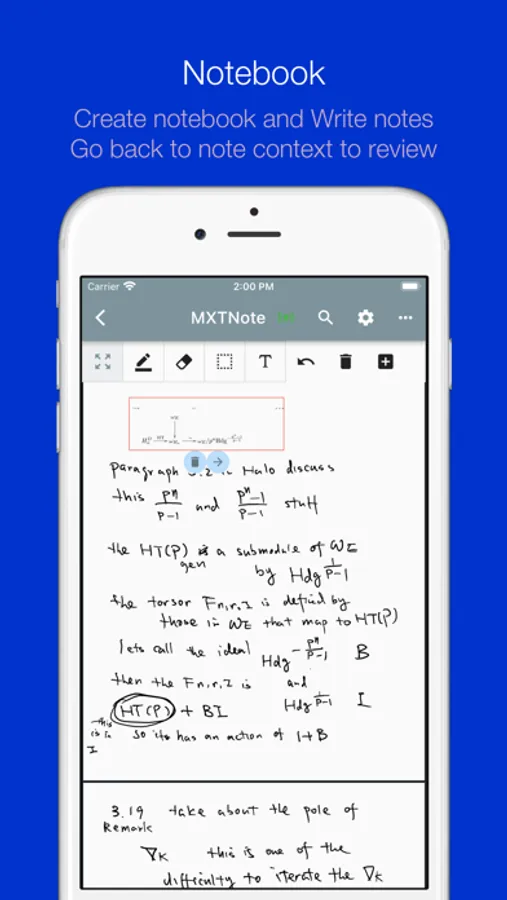 Notebook
Create notebook and Write notes
Go back to note context to review
Carrier 2:00 PM
MXTNote
T
paragraph in Halo discuss
this p^n/p-1 and p^n-1/p-1 stuff
the HT(P) is a submodule of ωE
gen by Hdg^1/p-1
the torsor Fn,r,I is defined by
those in ωE that map to HT(P)
lets call the ideal Hdg^-p^n/p-1 B
then the Fn,r,I is and
HT(P) + BI Hdg^1/p-1 I
this is in I
so its has an action of 1+B
3.19 take about the pole of
Remark
∇K this is one of the
difficulty to iterate the ∇K